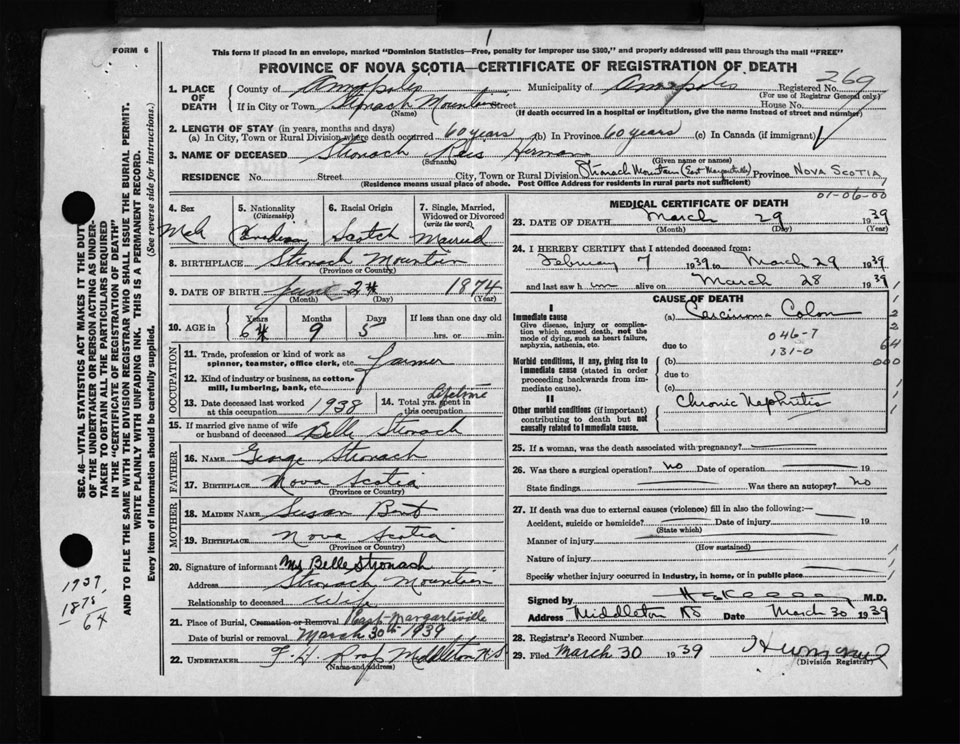 FORM 6
This form if placed in an envelope, marked "Dominion Statistics—Free, penalty for improper use $300," and properly addressed will pass through the mail "FREE"
PROVINCE OF NOVA SCOTIA—CERTIFICATE OF REGISTRATION OF DEATH
269
1. PLACE OF DEATH
County of Annapolis Municipality of Annapolis Registered No.
(For use of Registrar General only)
If in City or Town Stronach Mountain Street House No.
(Name) (If death occurred in a hospital or institution, give the name instead of street and number)
2. LENGTH OF STAY (in years, months and days)
(a) In City, Town or Rural Division where death occurred 60 years (b) In Province 60 years (c) In Canada (if immigrant)
3. NAME OF DECEASED Stronach Herman
(Surname) (Given name or names)
RESIDENCE No. Street City, Town or Rural Division Stronach Mountain (East Margaretville) Province NOVA SCOTIA
(Residence means usual place of abode. Post Office Address for residents in rural parts not sufficient)
01-06-00
4. Sex
5. Nationality (Citizenship)
6. Racial Origin
7. Single, Married, Widowed or Divorced (write the word)
Male Canadian Scotch Married
8. BIRTHPLACE Stronach Mountain
(Province or Country)
9. DATE OF BIRTH June 24 1874
(Month) (Day) (Year)
10. AGE in Years Months Days If less than one day old
64 9 5 hrs. or min.
OCCUPATION
11. Trade, profession or kind of work as spinner, teamster, office clerk, etc. farmer
12. Kind of industry or business, as cotton-mill, lumbering, bank, etc.
13. Date deceased last worked at this occupation 1938
14. Total yrs. spent in this occupation Lifetime
15. If married give name of wife or husband of deceased Belle Stronach
FATHER
16. NAME George Stronach
17. BIRTHPLACE Nova Scotia
(Province or Country)
MOTHER
18. MAIDEN NAME Susan Bent
19. BIRTHPLACE Nova Scotia
(Province or Country)
20. Signature of informant Mrs Belle Stronach
Address Stronach Mountain
Relationship to deceased Wife
21. Place of Burial, Cremation or Removal East Margaretville
Date of burial or removal March 30th 1939
22. UNDERTAKER F. H. Roop Middleton N.S
(Name and address)
MEDICAL CERTIFICATE OF DEATH
23. DATE OF DEATH March 29 1939
(Month) (Day) (Year)
24. I HEREBY CERTIFY that I attended deceased from:
February 7 1939 to March 29 1939
and last saw him alive on March 28 1939
CAUSE OF DEATH
I
Immediate cause (a) Carcinoma Colon
Give disease, injury or complication which caused death, not the mode of dying, such as heart failure, asphyxia, asthenia, etc.
046-7
due to
131-0
64
000
Morbid conditions, if any, giving rise to immediate cause (stated in order proceeding backwards from immediate cause).
(b)
due to
(c)
II
Other morbid conditions (if important) contributing to death but not causally related to immediate cause.
Chronic Nephritis
25. If a woman, was the death associated with pregnancy?
26. Was there a surgical operation? no Date of operation 19
State findings Was there an autopsy? no
27. If death was due to external causes (violence) fill in also the following:—
Accident, suicide or homicide? Date of injury 19
(State which)
Manner of injury
(How sustained)
Nature of injury
Specify whether injury occurred in industry, in home, or in public place
Signed by M.D.
Address Middleton NS Date March 30 1939
28. Registrar's Record Number
29. Filed March 30 1939
(Division Registrar)
SEC. 46—VITAL STATISTICS ACT MAKES IT THE DUTY
OF THE UNDERTAKER OR PERSON ACTING AS UNDER-
TAKER TO OBTAIN ALL THE PARTICULARS REQUIRED
IN THE "CERTIFICATE OF REGISTRATION OF DEATH"
AND TO FILE THE SAME WITH THE DIVISION REGISTRAR WHO SHALL ISSUE THE BURIAL PERMIT.
WRITE PLAINLY WITH UNFADING INK. THIS IS A PERMANENT RECORD.
Every item of information should be carefully supplied. (See reverse side for instructions.)
1939
1875
64